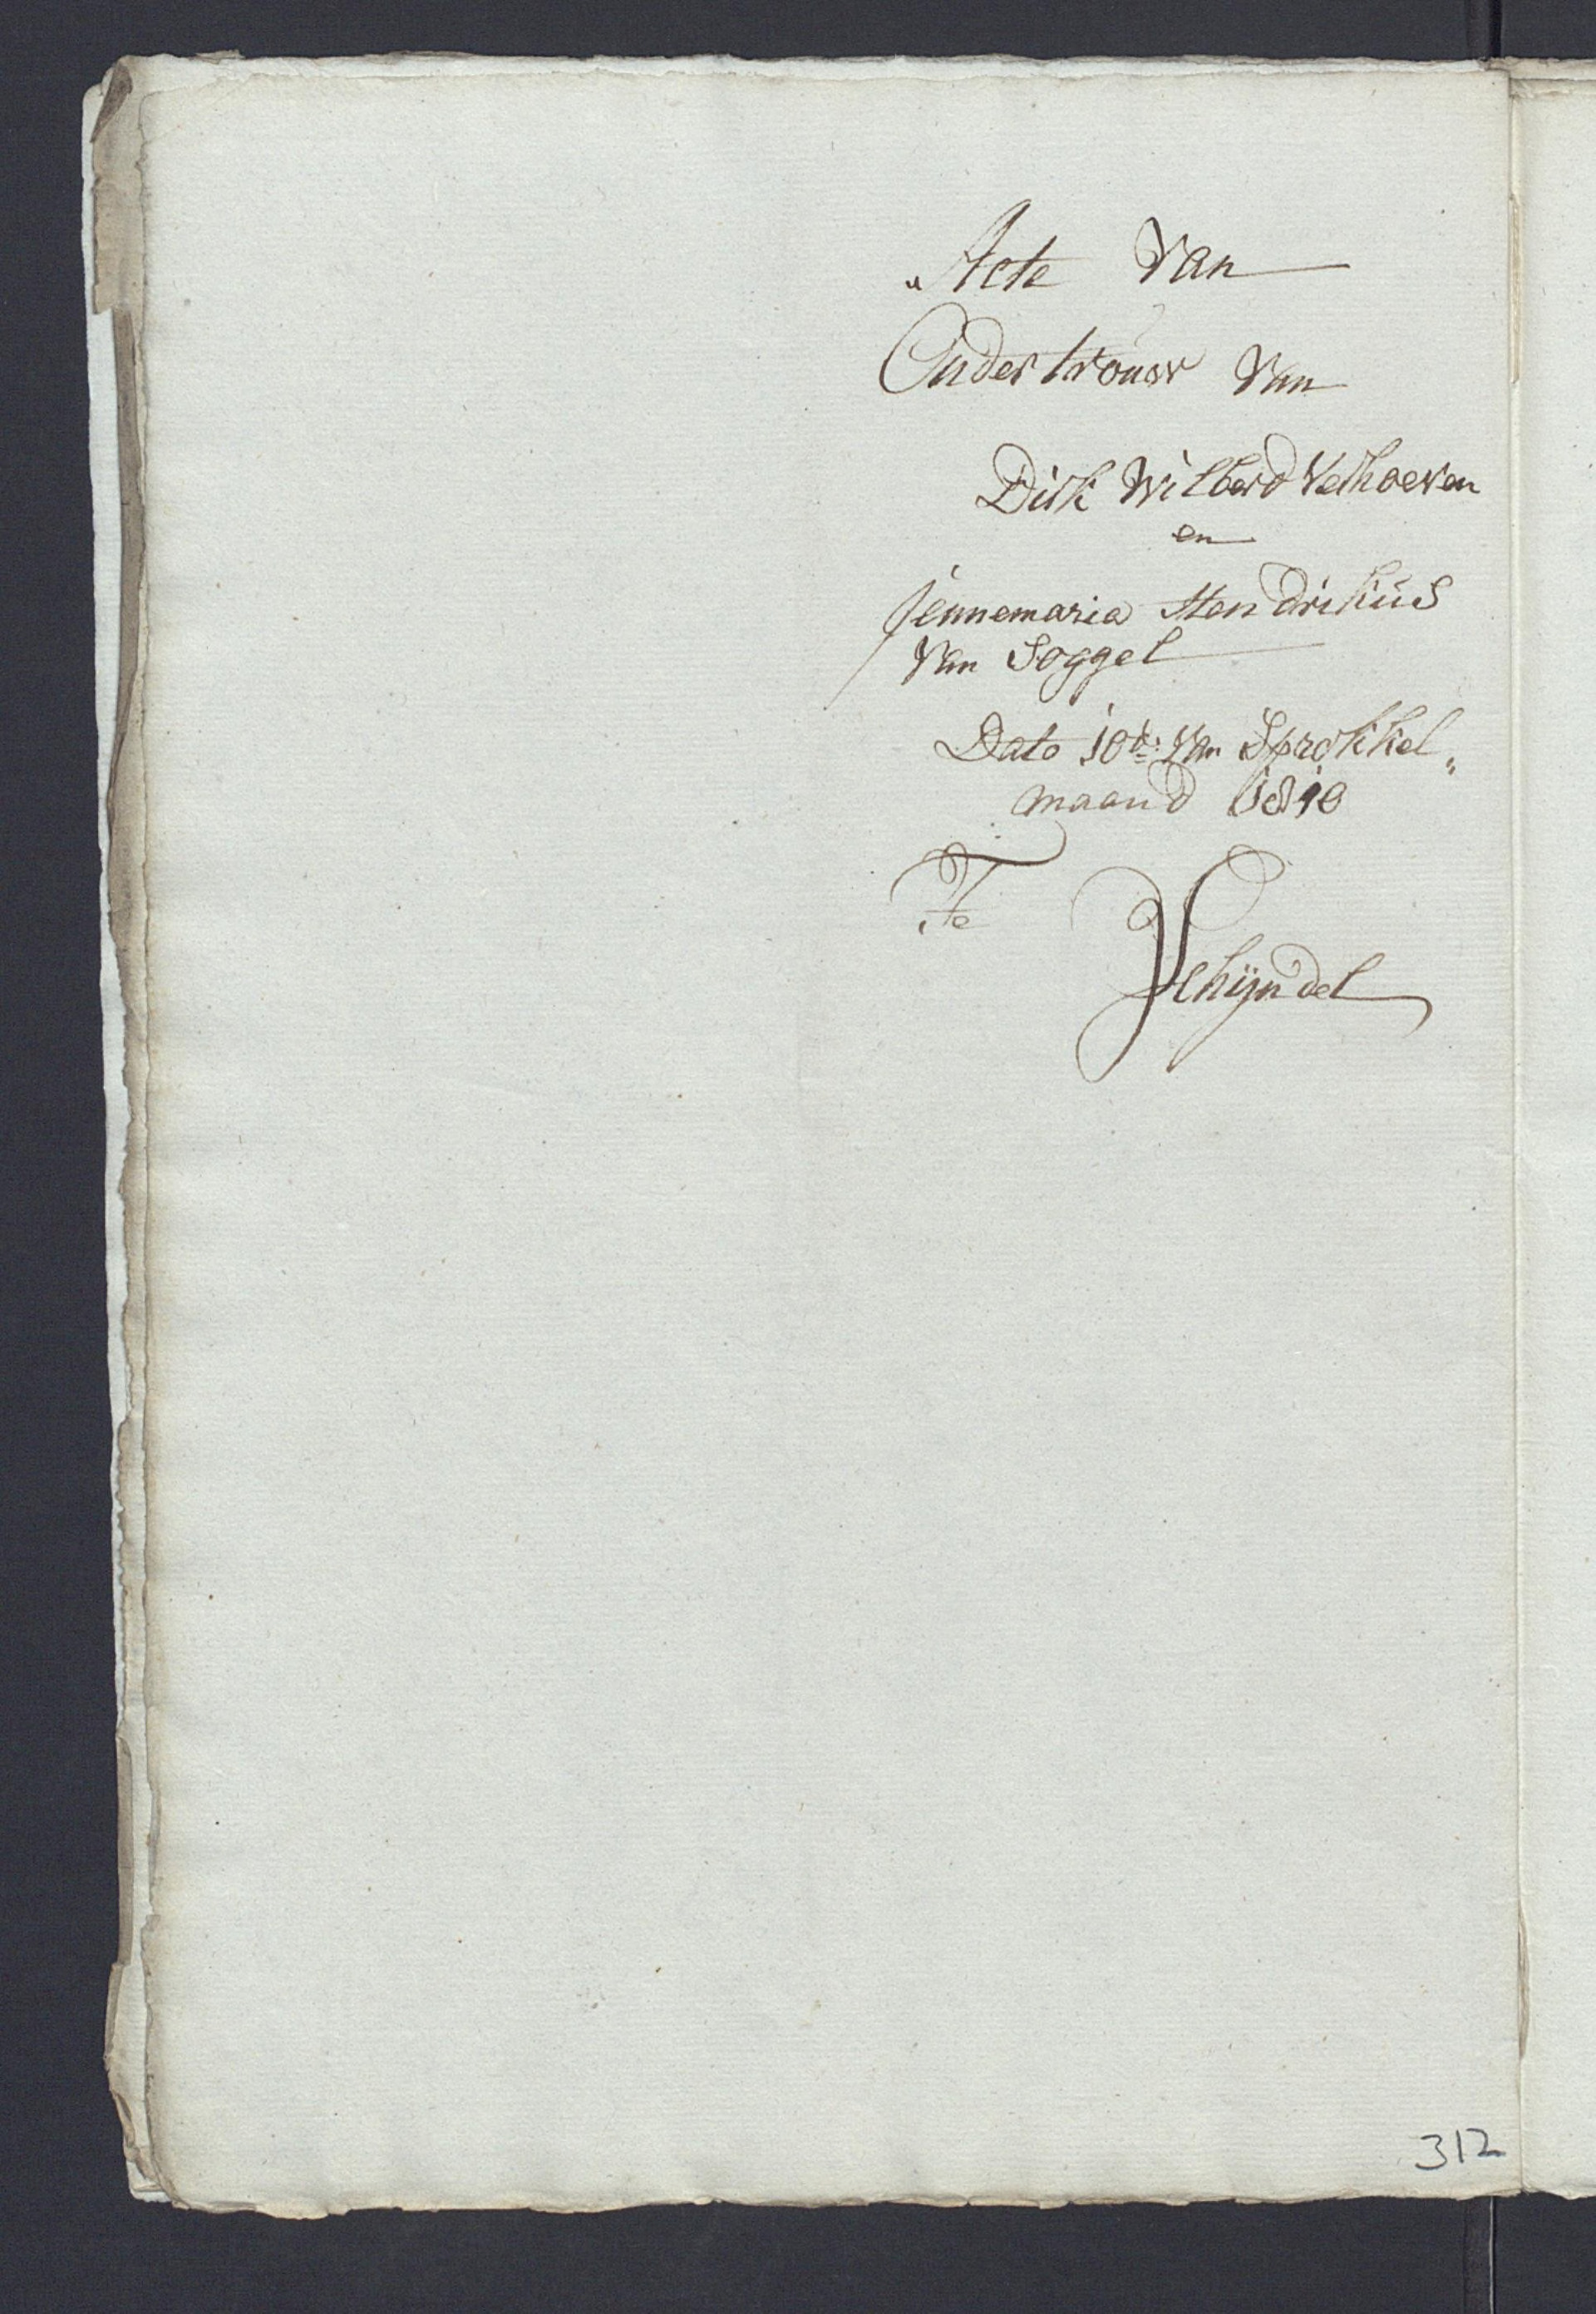 Acte Van
Ondertrouw Van
Dirk Wilberd Verhoeven
en
Jennemaria Hendrikus
Van Soggel
Dato 10de: Van Sprokkel„
maand 1810
Te
Schijndel
312